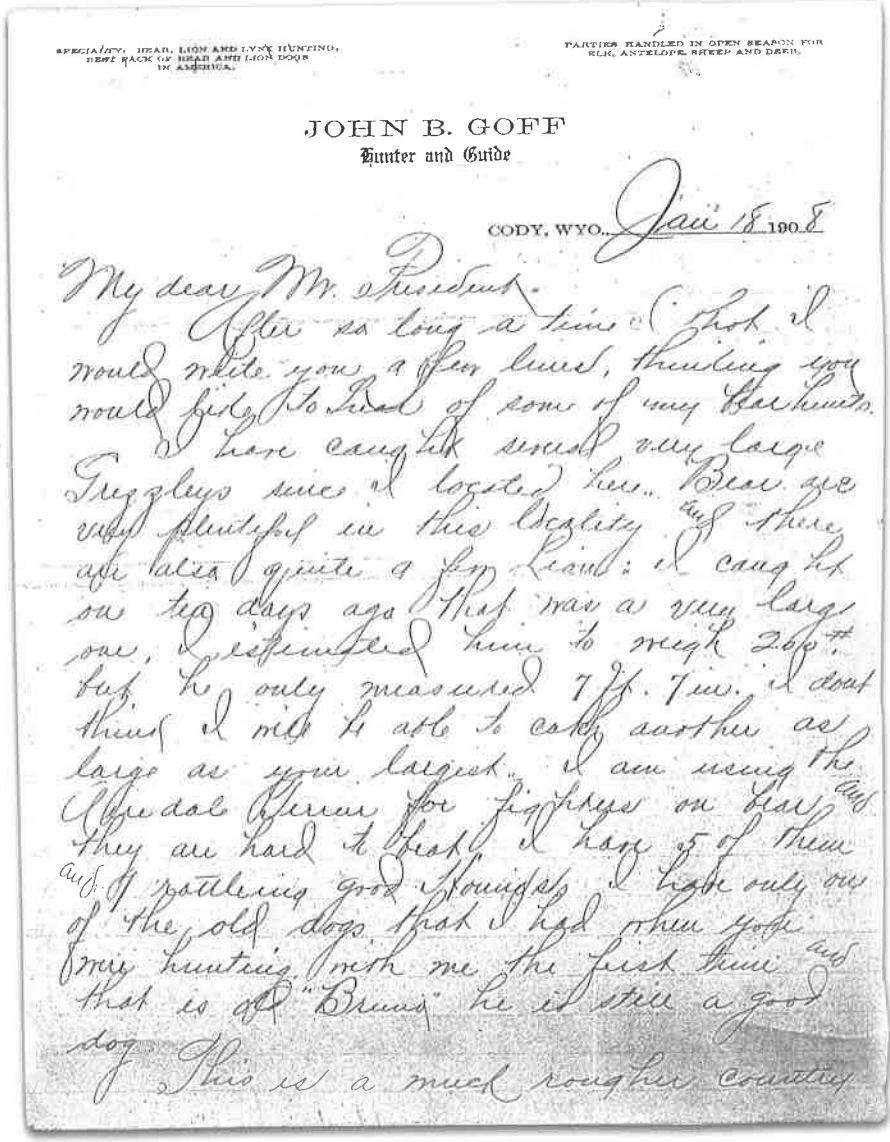 SPECIALTY: BEAR, LION AND LYNX HUNTING,
BEST PACK OF BEAR AND LION DOGS
IN AMERICA.
PARTIES HANDLED IN OPEN SEASON FOR
ELK, ANTELOPE, SHEEP AND DEER.
JOHN B. GOFF
Hunter and Guide
CODY, WYO., Jan 18 1908
My dear Mr. President.
After so long a time that I
would write you a few lines, thinking you
would like to hear of some of my Bear hunts.
I have caught several very large
Grizzleys since I located here. Bear are
very plentyful in this locality and there
are also quite a few Lion: I caught
on ten days ago that was a very large
one, I estimated him to weigh 200#.
but he only measured 7 ft. 7 in. I dont
think I will be able to catch another as
large as your largest. I am using the
Airedale Terrier for fighters on bear and
they are hard to beat I have 5 of them
and 9 rattling good Hounds I have only one
of the old dogs that I had when you
were hunting with me the first time and
that is old "Bruno" he is still a good
dog.
This is a much rougher country